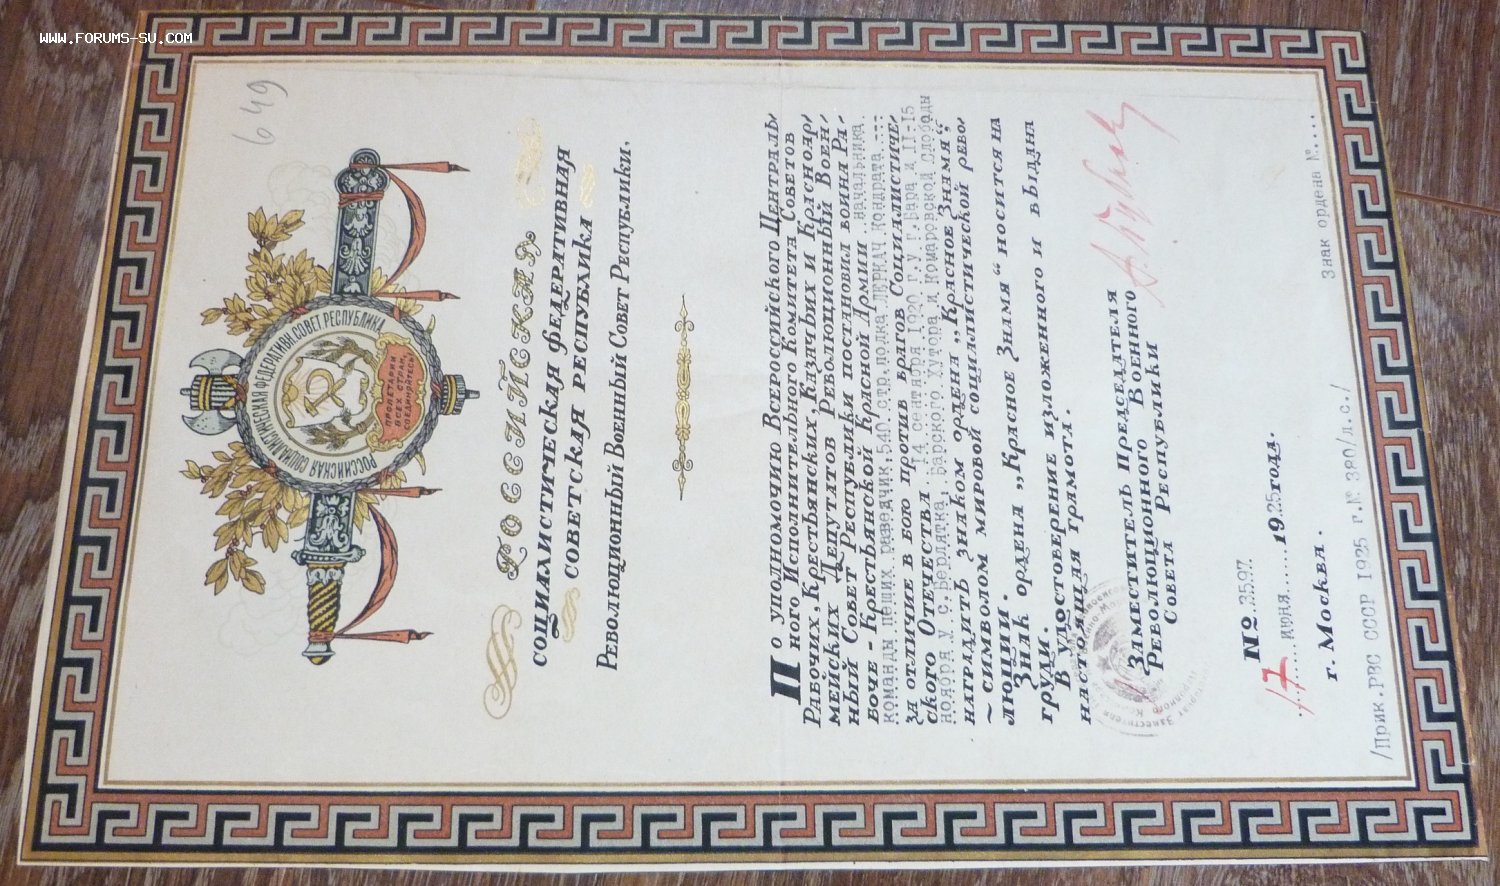 WWW.FORUMS-SU.COM
649
РОССИЙСКАЯ СОЦИАЛИСТИЧЕСКАЯ ФЕДЕРАТИВН. СОВЕТ. РЕСПУБЛИКА
ПРОЛЕТАРИИ
ВСЕХ СТРАН,
СОЕДИНЯЙТЕСЬ!
РОССИЙСКАЯ
СОЦИАЛИСТИЧЕСКАЯ ФЕДЕРАТИВНАЯ
СОВЕТСКАЯ РЕСПУБЛИКА
Революционный Военный Совет Республики.
По уполномочию Всероссийского Централь-
ного Исполнительного Комитета Советов
Рабочих, Крестьянских, Казачьих и Красноар-
мейских Депутатов Революционный Воен-
ный Совет Республики постановил воина Ра-
боче-Крестьянской Красной Армии начальника
команды пеших разведчик. 540 стр. полка ДЕРКАЧ Кондрата
за отличие в бою против врагов Социалистиче-
ского Отечества 14 сентября 1920 г. у г. Бара и 11-15
ноября у с. Верлятка, Барского хутора и Комаровской слободы
наградить знаком ордена „Красное Знамя“,
- символом мировой социалистической рево-
люции.
Знак ордена „Красное Знамя“ носится на
груди.
В удостоверение изложенного и выдана
настоящая грамота.
Заместитель Председателя
Революционного Военного
Совета Республики
№ 3597
17 июня 1925 года.
г. Москва.
Знак ордена №....
/Прик. РВС СССР 1925 г. № 380/л.с./